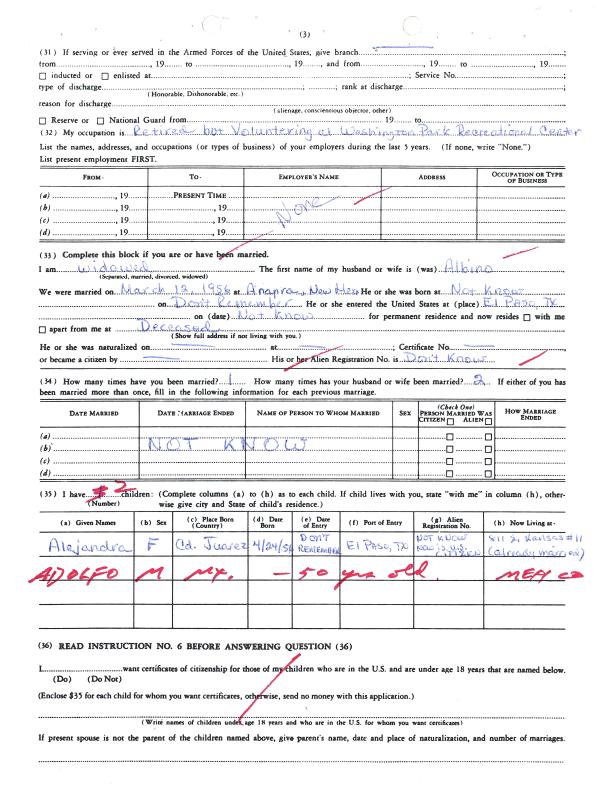 (3)
(31) If serving or ever served in the Armed Forces of the United States, give branch ;
from , 19 to , 19 , and from , 19 to , 19 ;
☐ inducted or ☐ enlisted at ; Service No. ;
type of discharge ; rank at discharge ;
(Honorable, Dishonorable, etc.)
reason for discharge
(alienage, conscientious objector, other)
☐ Reserve or ☐ National Guard from 19 to
(32) My occupation is Retired but Voluntering at Washington Park Recreational Center
List the names, addresses, and occupations (or types of business) of your employers during the last 5 years. (If none, write "None.")
List present employment FIRST.
FROM - TO - EMPLOYER'S NAME ADDRESS OCCUPATION OR TYPE OF BUSINESS
(a) , 19 PRESENT TIME
(b) , 19 , 19 None
(c) , 19 , 19
(d) , 19 , 19
(33) Complete this block if you are or have been married.
I am widowed The first name of my husband or wife is (was) Albino
(Separated, married, divorced, widowed)
We were married on March 12, 1956 at Anapra, New Mex He or she was born at Not Know
on Don't Remember He or she entered the United States at (place) El Paso, TX
on (date) Not Know for permanent residence and now resides ☐ with me
☐ apart from me at Deceased
(Show full address if not living with you.)
He or she was naturalized on at Certificate No.
or became a citizen by His or her Alien Registration No. is Don't Know
(34) How many times have you been married? 1 How many times has your husband or wife been married? 2 If either of you has
been married more than once, fill in the following information for each previous marriage.
DATE MARRIED DATE MARRIAGE ENDED NAME OF PERSON TO WHOM MARRIED SEX (Check One) PERSON MARRIED WAS CITIZEN ☐ ALIEN ☐ HOW MARRIAGE ENDED
(a) ☐ ☐
(b) NOT KNOW ☐ ☐
(c) ☐ ☐
(d) ☐ ☐
(35) I have 2 children: (Complete columns (a) to (h) as to each child. If child lives with you, state "with me" in column (h), other-
(Number) wise give city and State of child's residence.)
(a) Given Names (b) Sex (c) Place Born (Country) (d) Date Born (e) Date of Entry (f) Port of Entry (g) Alien Registration No. (h) Now Living at-
Alejandra F Cd. Juarez 4/24/56 DON'T REMEMBER El Paso, TX NOT KNOW Now is U.S. CITIZEN 811 2, Kansas #11 (already married)
ADOLFO M MX. - 50 yrs old. MEXICO
(36) READ INSTRUCTION NO. 6 BEFORE ANSWERING QUESTION (36)
I want certificates of citizenship for those of my children who are in the U.S. and are under age 18 years that are named below.
(Do) (Do Not)
(Enclose $35 for each child for whom you want certificates, otherwise, send no money with this application.)
(Write names of children under age 18 years and who are in the U.S. for whom you want certificates)
If present spouse is not the parent of the children named above, give parent's name, date and place of naturalization, and number of marriages.